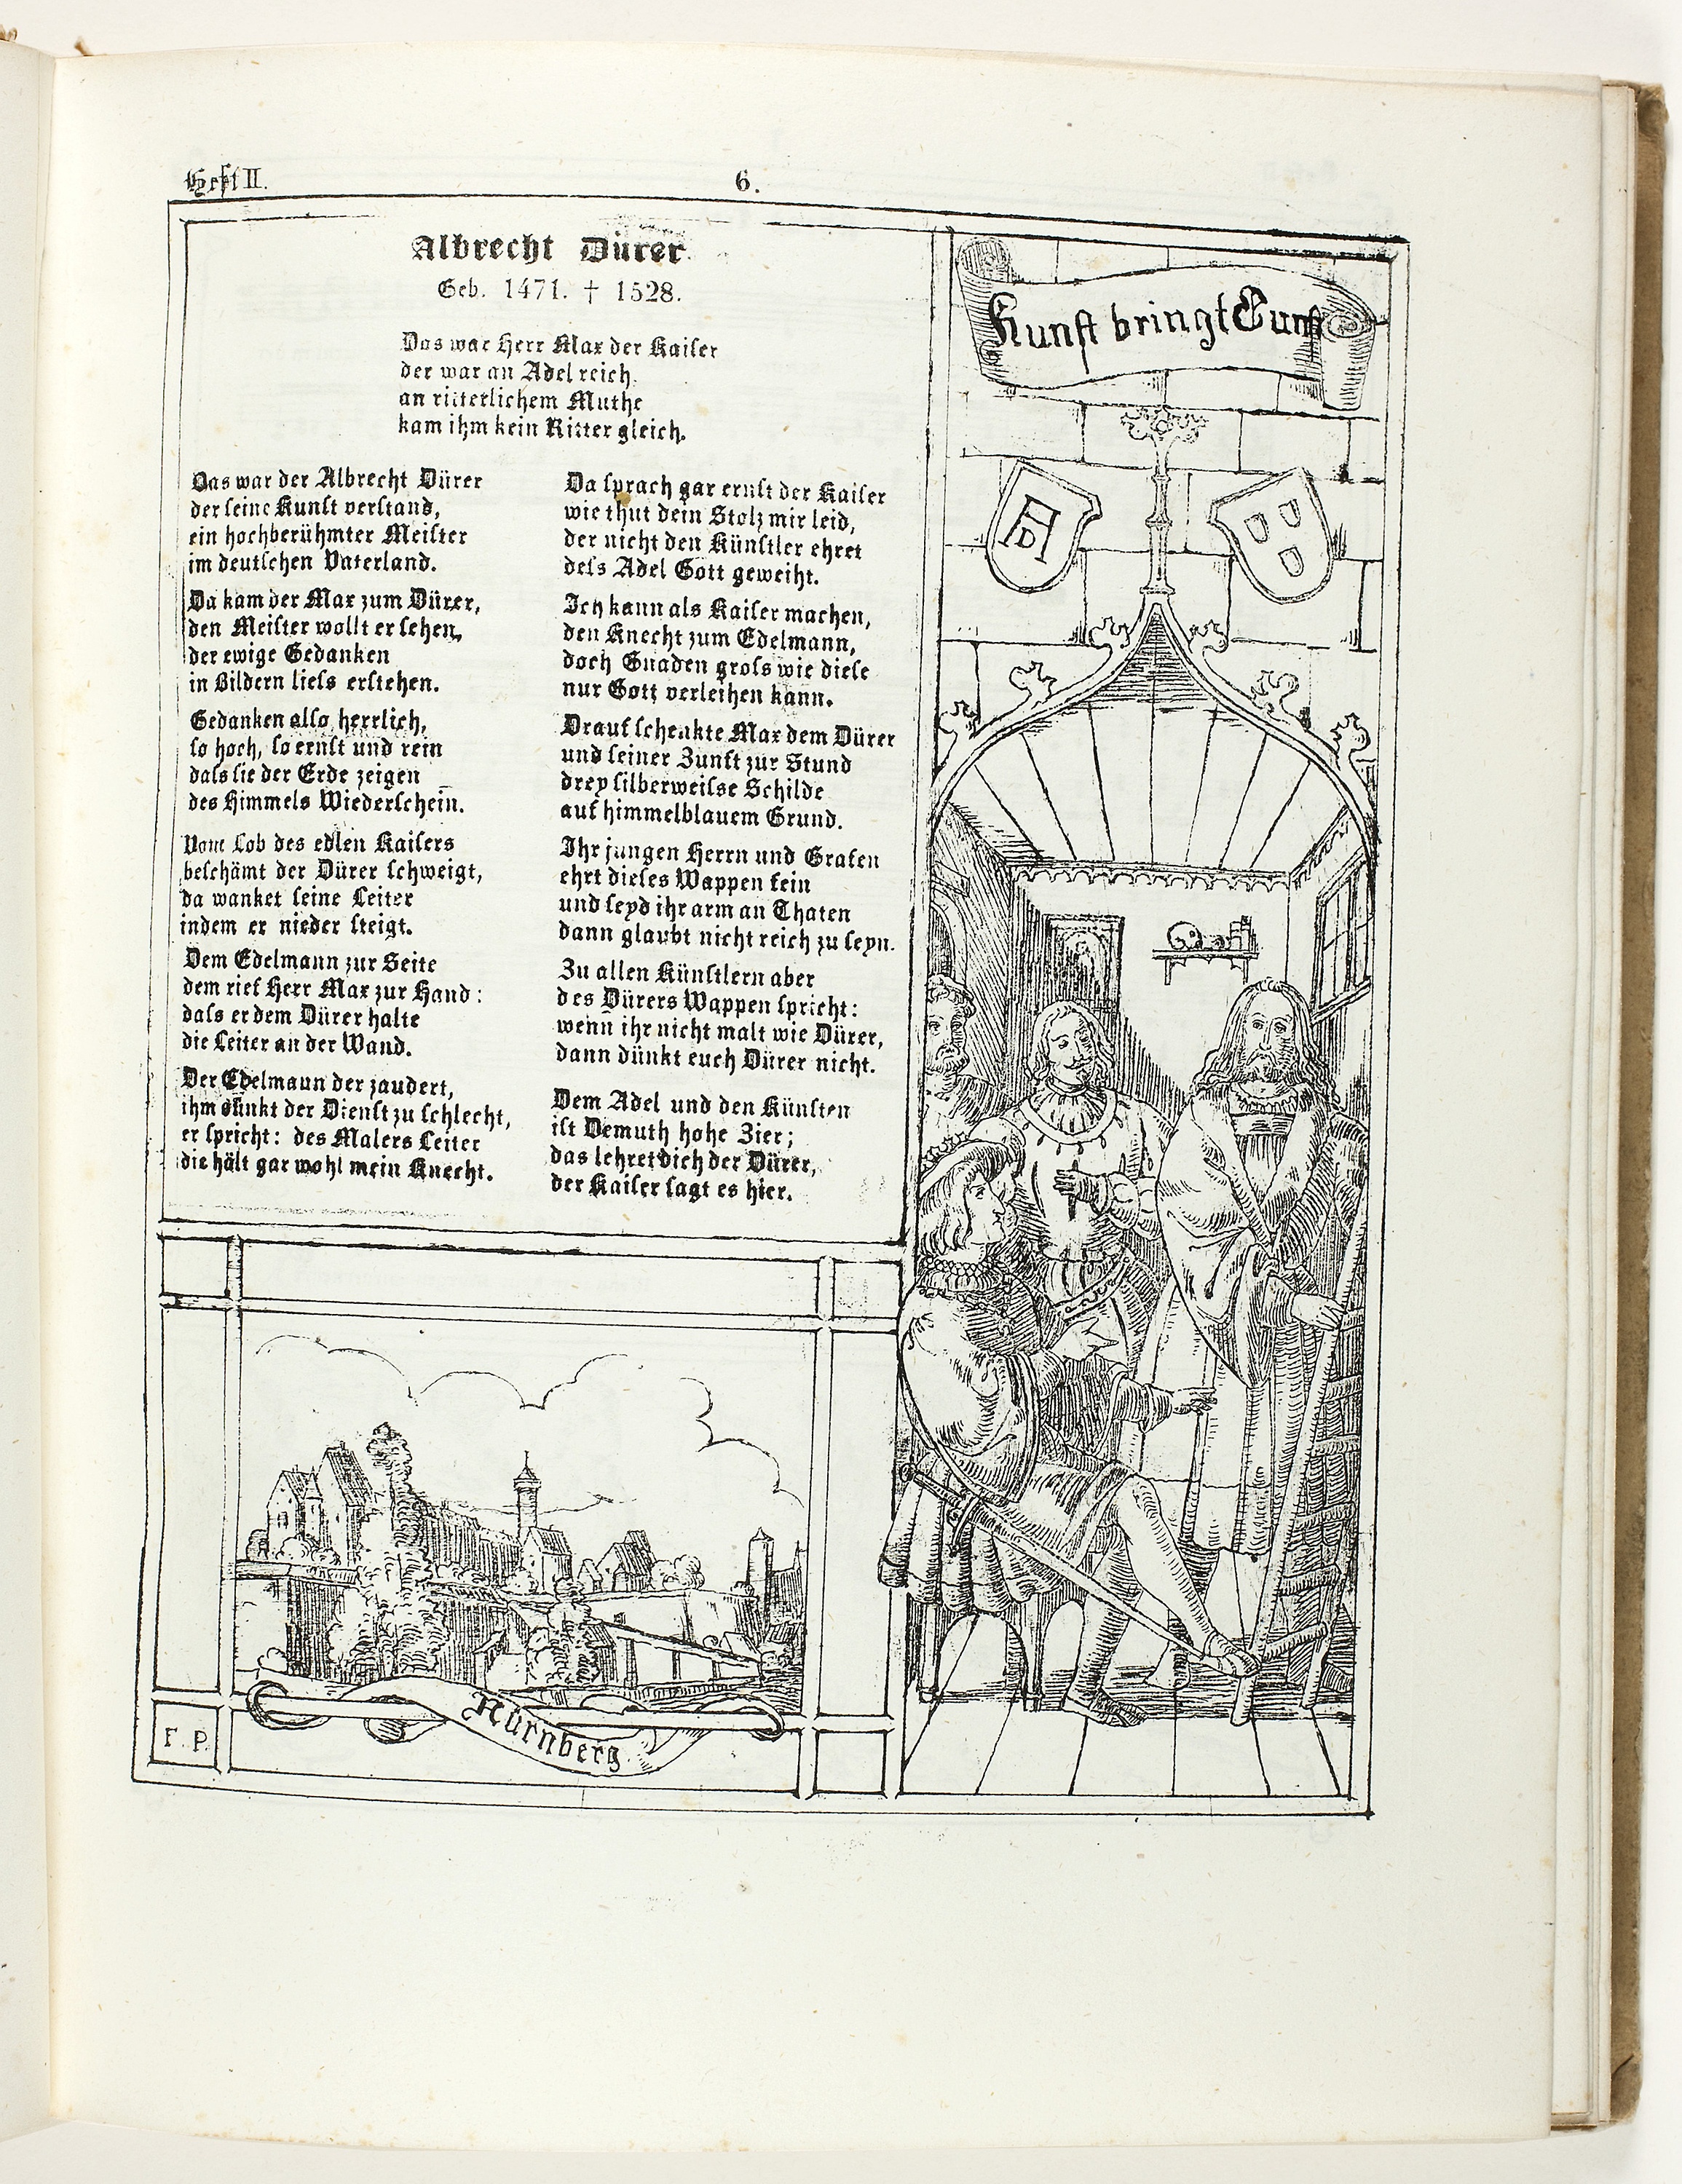 Heft II.
6.
Albrecht Dürer
Geb. 1471. † 1528.
Das war Herr Max der Kaiser
der war an Adel reich
an ritterlichem Muthe
kam ihm kein Ritter gleich.
Das war der Albrecht Dürer
der seine Kunst verstand,
ein hochberühmter Meister
im deutschen Vaterland.
Da kam der Max zum Dürer,
den Meister wollt er sehen,
der ewige Gedanken
in Bildern liess erstehen.
Gedanken also herrlich,
so hoch, so ernst und rein
dass sie der Erde zeigen
des Himmels Wiederschein.
Vom Lob des edlen Kaisers
beschämt der Dürer schweigt,
da wanket seine Leiter
indem er nieder steigt.
Dem Edelmann zur Seite
dem rief Herr Max zur Hand:
dass er dem Dürer halte
die Leiter an der Wand.
Der Edelmann der zaudert,
ihm dünkt der Dienst zu schlecht,
er spricht: des Malers Leiter
die hält gar wohl mein Knecht.
Da sprach gar ernst der Kaiser
wie thut dein Stolz mir leid,
der nicht den Künstler ehret
dess Adel Gott geweiht.
Ich kann als Kaiser machen,
den Knecht zum Edelmann,
doch Gnaden gross wie diese
nur Gott verleihen kann.
Drauf schenkte Max dem Dürer
und seiner Zunft zur Stund
drey silberweisse Schilde
auf himmelblauem Grund.
Ihr jungen Herrn und Grafen
ehrt dieses Wappen fein
und seyd ihr arm an Thaten
dann glaubt nicht reich zu seyn.
Zu allen Künstlern aber
des Dürers Wappen spricht:
wenn ihr nicht malt wie Dürer,
dann dünkt euch Dürer nicht.
Dem Adel und den Künsten
ist Demuth hohe Zier;
das lehret dich der Dürer,
der Kaiser sagt es hier.
Kunst bringt Gunst
AD
Nürnberg
F. P.